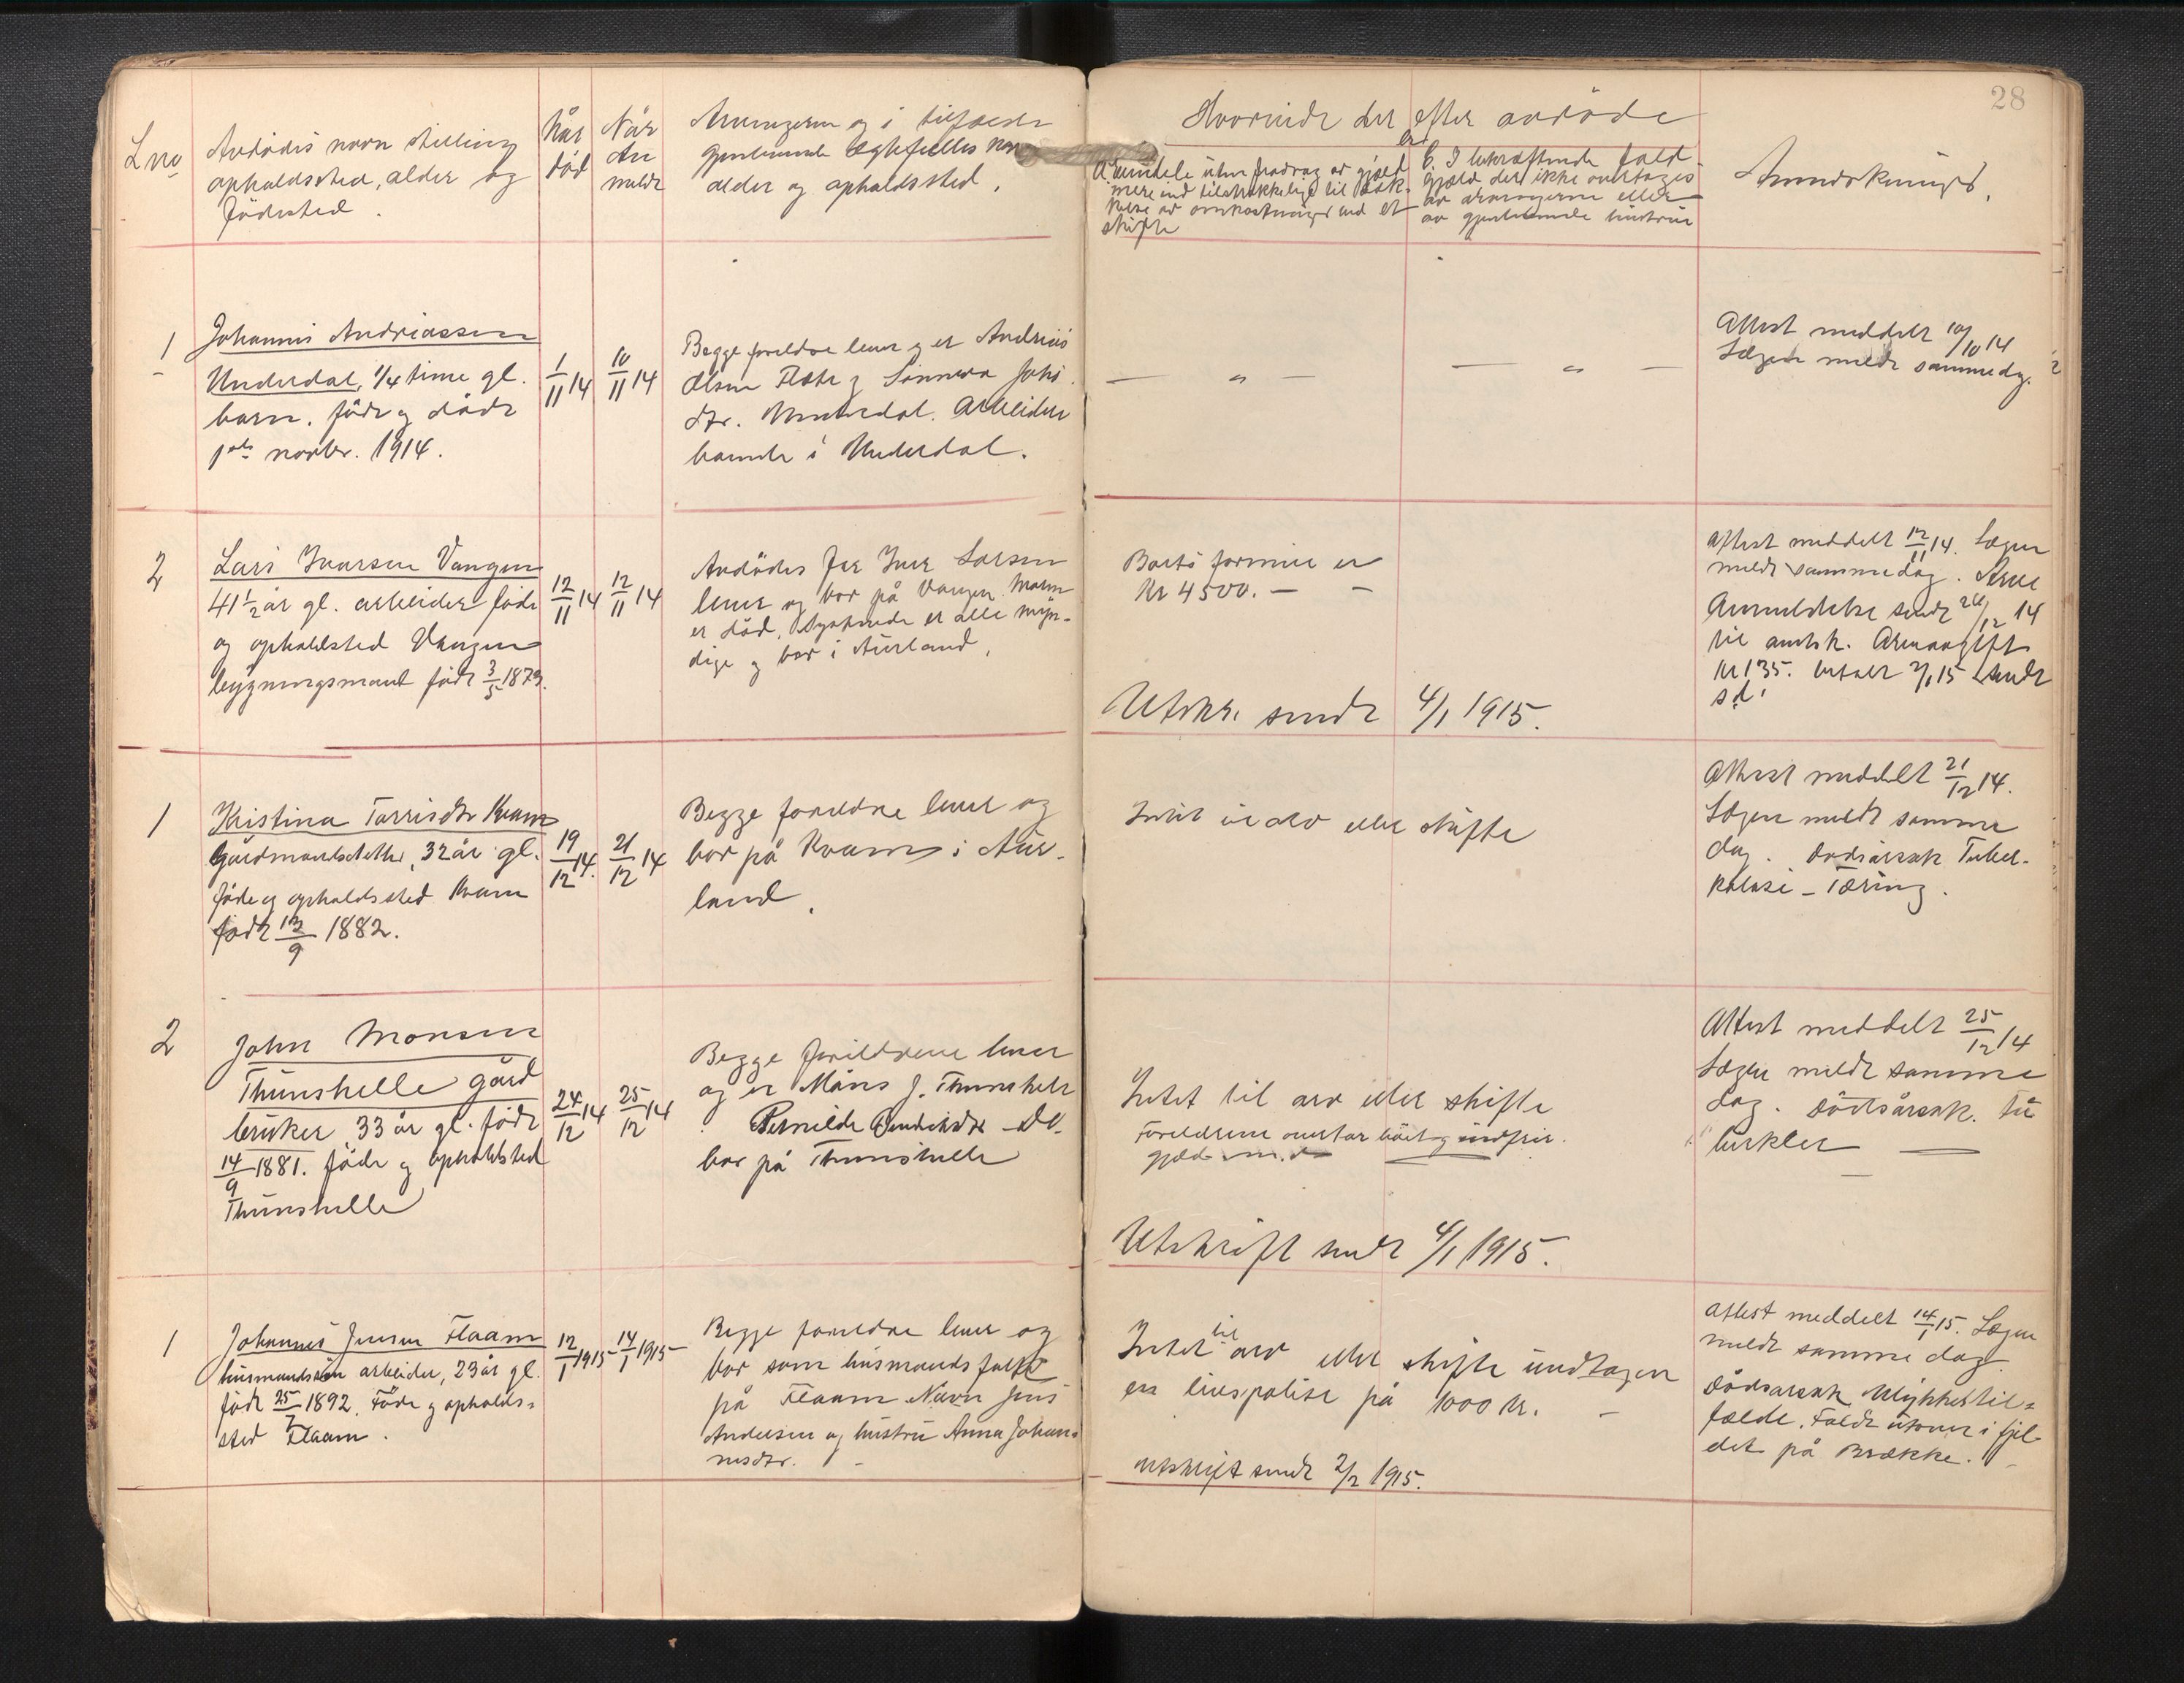 28
Lno
Avdødes navn stilling
opholdssted, alder og
fødested.
Når
død
Når
An
meldt
Arvingerne og i tilfælde
gjenlevende ægtefælles navn
alder og opholdssted.
Hvorvidt der efter avdøde
er
A. eiendele uten fradrag av gjæld
mere end tilstrækkelige til dæk-
kelse av omkostninger ved et
skifte
b. I bekræftende fald
gjæld der ikke overtages
av arvingerne eller
av gjenlevende hustru
Anmerkninger.
1
Johannes Andreassen
Underdal, 1/4 time gl.
barn. født og døde
1ste novbr. 1914.
1/11 14
10/11 14
Begge foreldre lever og er Andreas
Olsen Flåte og Sønneva Johs.
dtr. Underdal. Arbeider
boende i Underdal.
— " —
— " —
Attest meddelt 10/10 14
Lægen meldt sammedag.
2
Lars Ivarsen Vangen
41 1/2 år gl. arbeider føde
og opholdsted Vangen
bygningsmand født 3/5 1873.
12/11 14
12/11 14
Avdødes Far Iver Larsen
lever og bor på Vangen. Moren
er død. Syskende er alle myn-
dige og bor i Aurland.
Boets formue er
Kr 4500. —
Utskr. sendt 4/1 1915.
Attest meddelt 12/11 14. Lægen
meldt sammedag. Arve
Anmeldelse sendt 26/12 14
til amtsk. Arveavgift
Kr 135. betalt 2/1 15 & sendt
s.d.
1
Kristina Torrisdtr Kvam
Gårdmandsdatter, 32 år gl.
føde og opholdssted Kvam
født 13/9 1882.
19/12 14.
21/12 14
Begge foreldre lever og
bor på Kvam i Aur-
land.
Intet til arv eller skifte
Attest meddelt 21/12 14.
Lægen meldt samme
dag. Dødsårsak Tuber-
kulose - Tæring.
2
John Monsen
Thunshelle gård
bruker, 33 år gl. født
14/9 1881. føde og opholdsted
Thunshelle
24/12 14
25/12 14
Begge foreldrene lever
og er Måns J. Thunshelle
Pernilde Hendriksdtr Do.
bor på Thunshelle
Intet til arv eller skifte
Foreldrene overtar boet og indfrir
gjæld m.m.
Utskrift sendt 4/1 1915.
Attest meddelt 25/12 14
Lægen meldt samme
dag. Dødsårsak. tu
berkler —
1
Johannes Jensen Flaam
husmandssøn arbeider, 23 år gl.
født 25/7 1892. Føde og opholds-
sted Flaam.
12/1 1915
14/1 1915
Begge foreldre lever og
bor som husmandsfolk
på Flaam Navn Jens
Andersen og hustru Anna Johan-
nesdtr.
Intet til arv eller skifte undtagen
en livspolise på 1000 kr. —
Utskrift sendt 2/2 1915.
Attest meddelt 14/1 15. Lægen
meldt samme dag.
Dødsarsak Ulykkestil-
fælde. Faldt utover i fjel-
det på Brække.